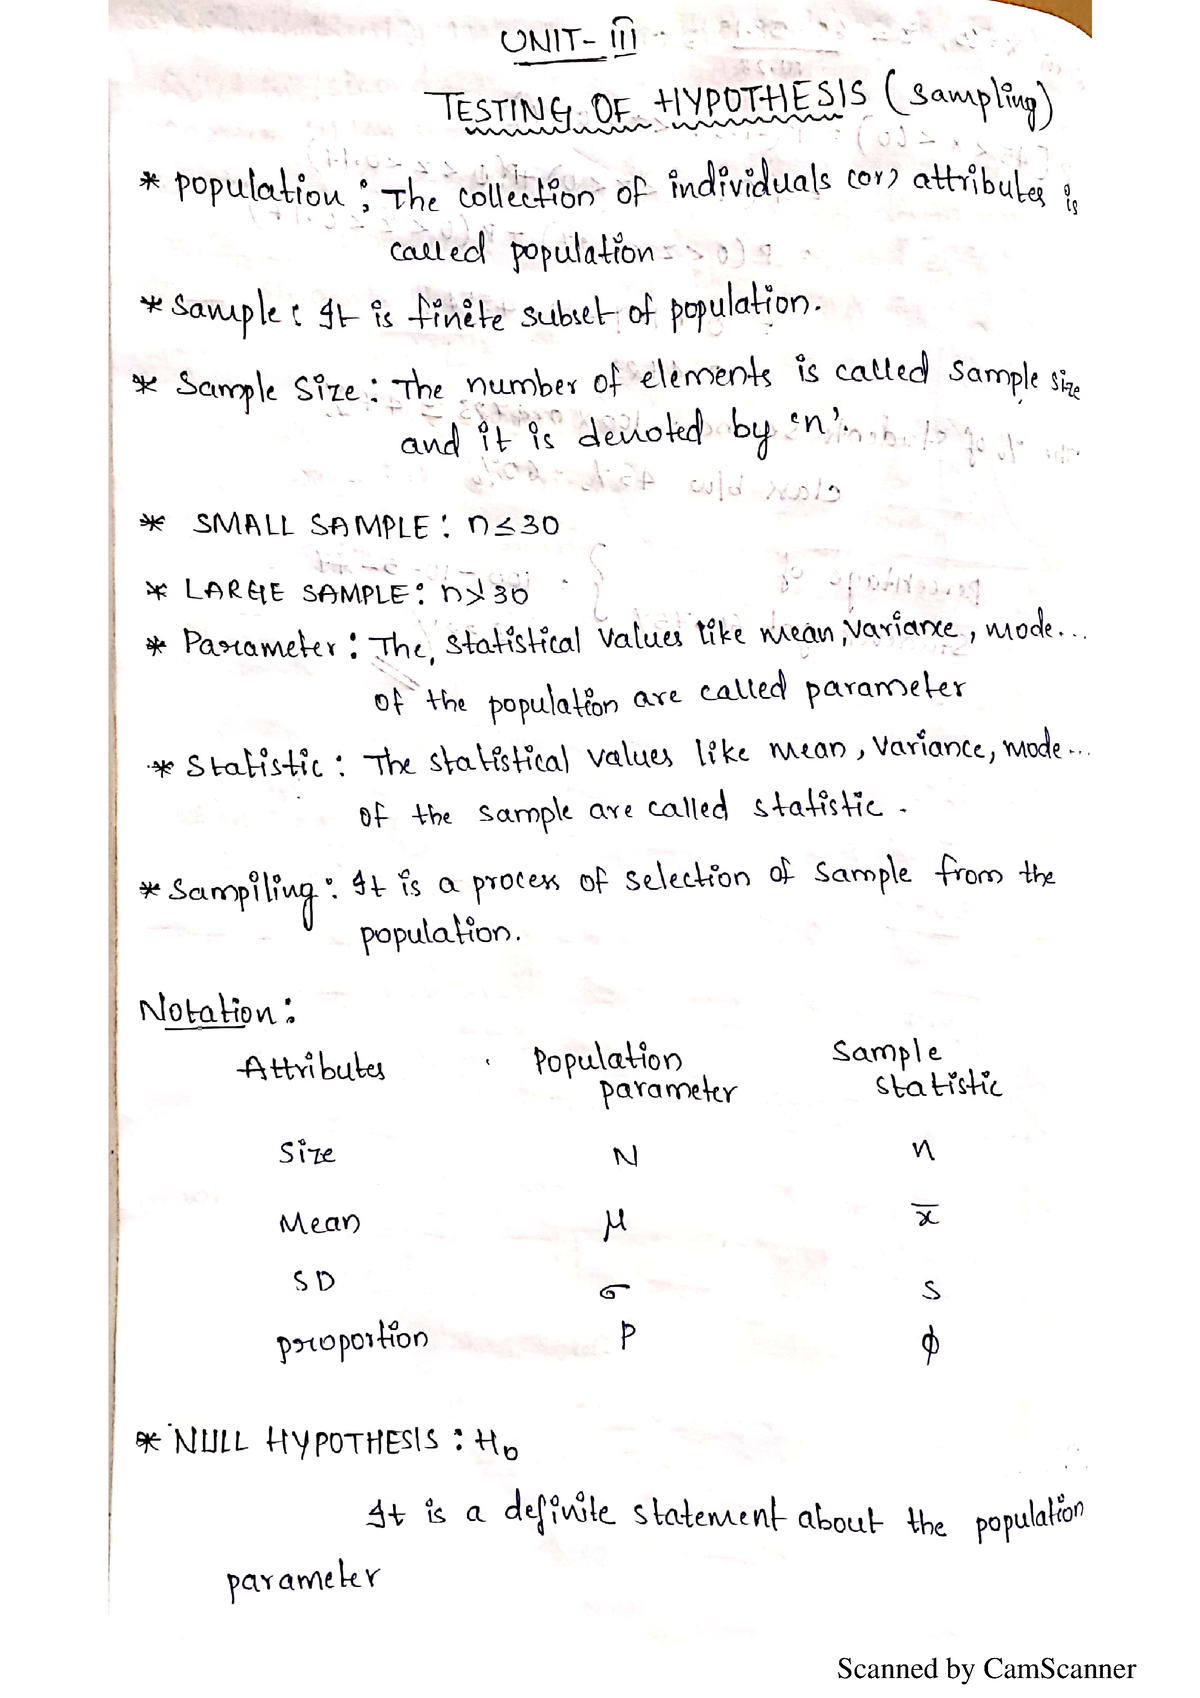 UNIT- III
TESTING OF HYPOTHESIS (sampling)
* population : The collection of individuals (or) attributes is
called population
* Sample : It is finite subset of population.
* Sample Size : The number of elements is called sample size
and it is denoted by 'n'.
* SMALL SAMPLE : n≤30
* LARGE SAMPLE : n>30
* Parameter : The, statistical values like mean, variance, mode...
of the population are called parameter
* Statistic : The statistical values like mean, variance, mode...
of the sample are called statistic.
* Sampiling : It is a process of selection of sample from the
population.
Notation :
Attributes Population parameter Sample statistic
Size N n
Mean μ x̄
SD σ s
proportion P
* NULL HYPOTHESIS : H₀
It is a definite statement about the population
parameter
Scanned by CamScanner